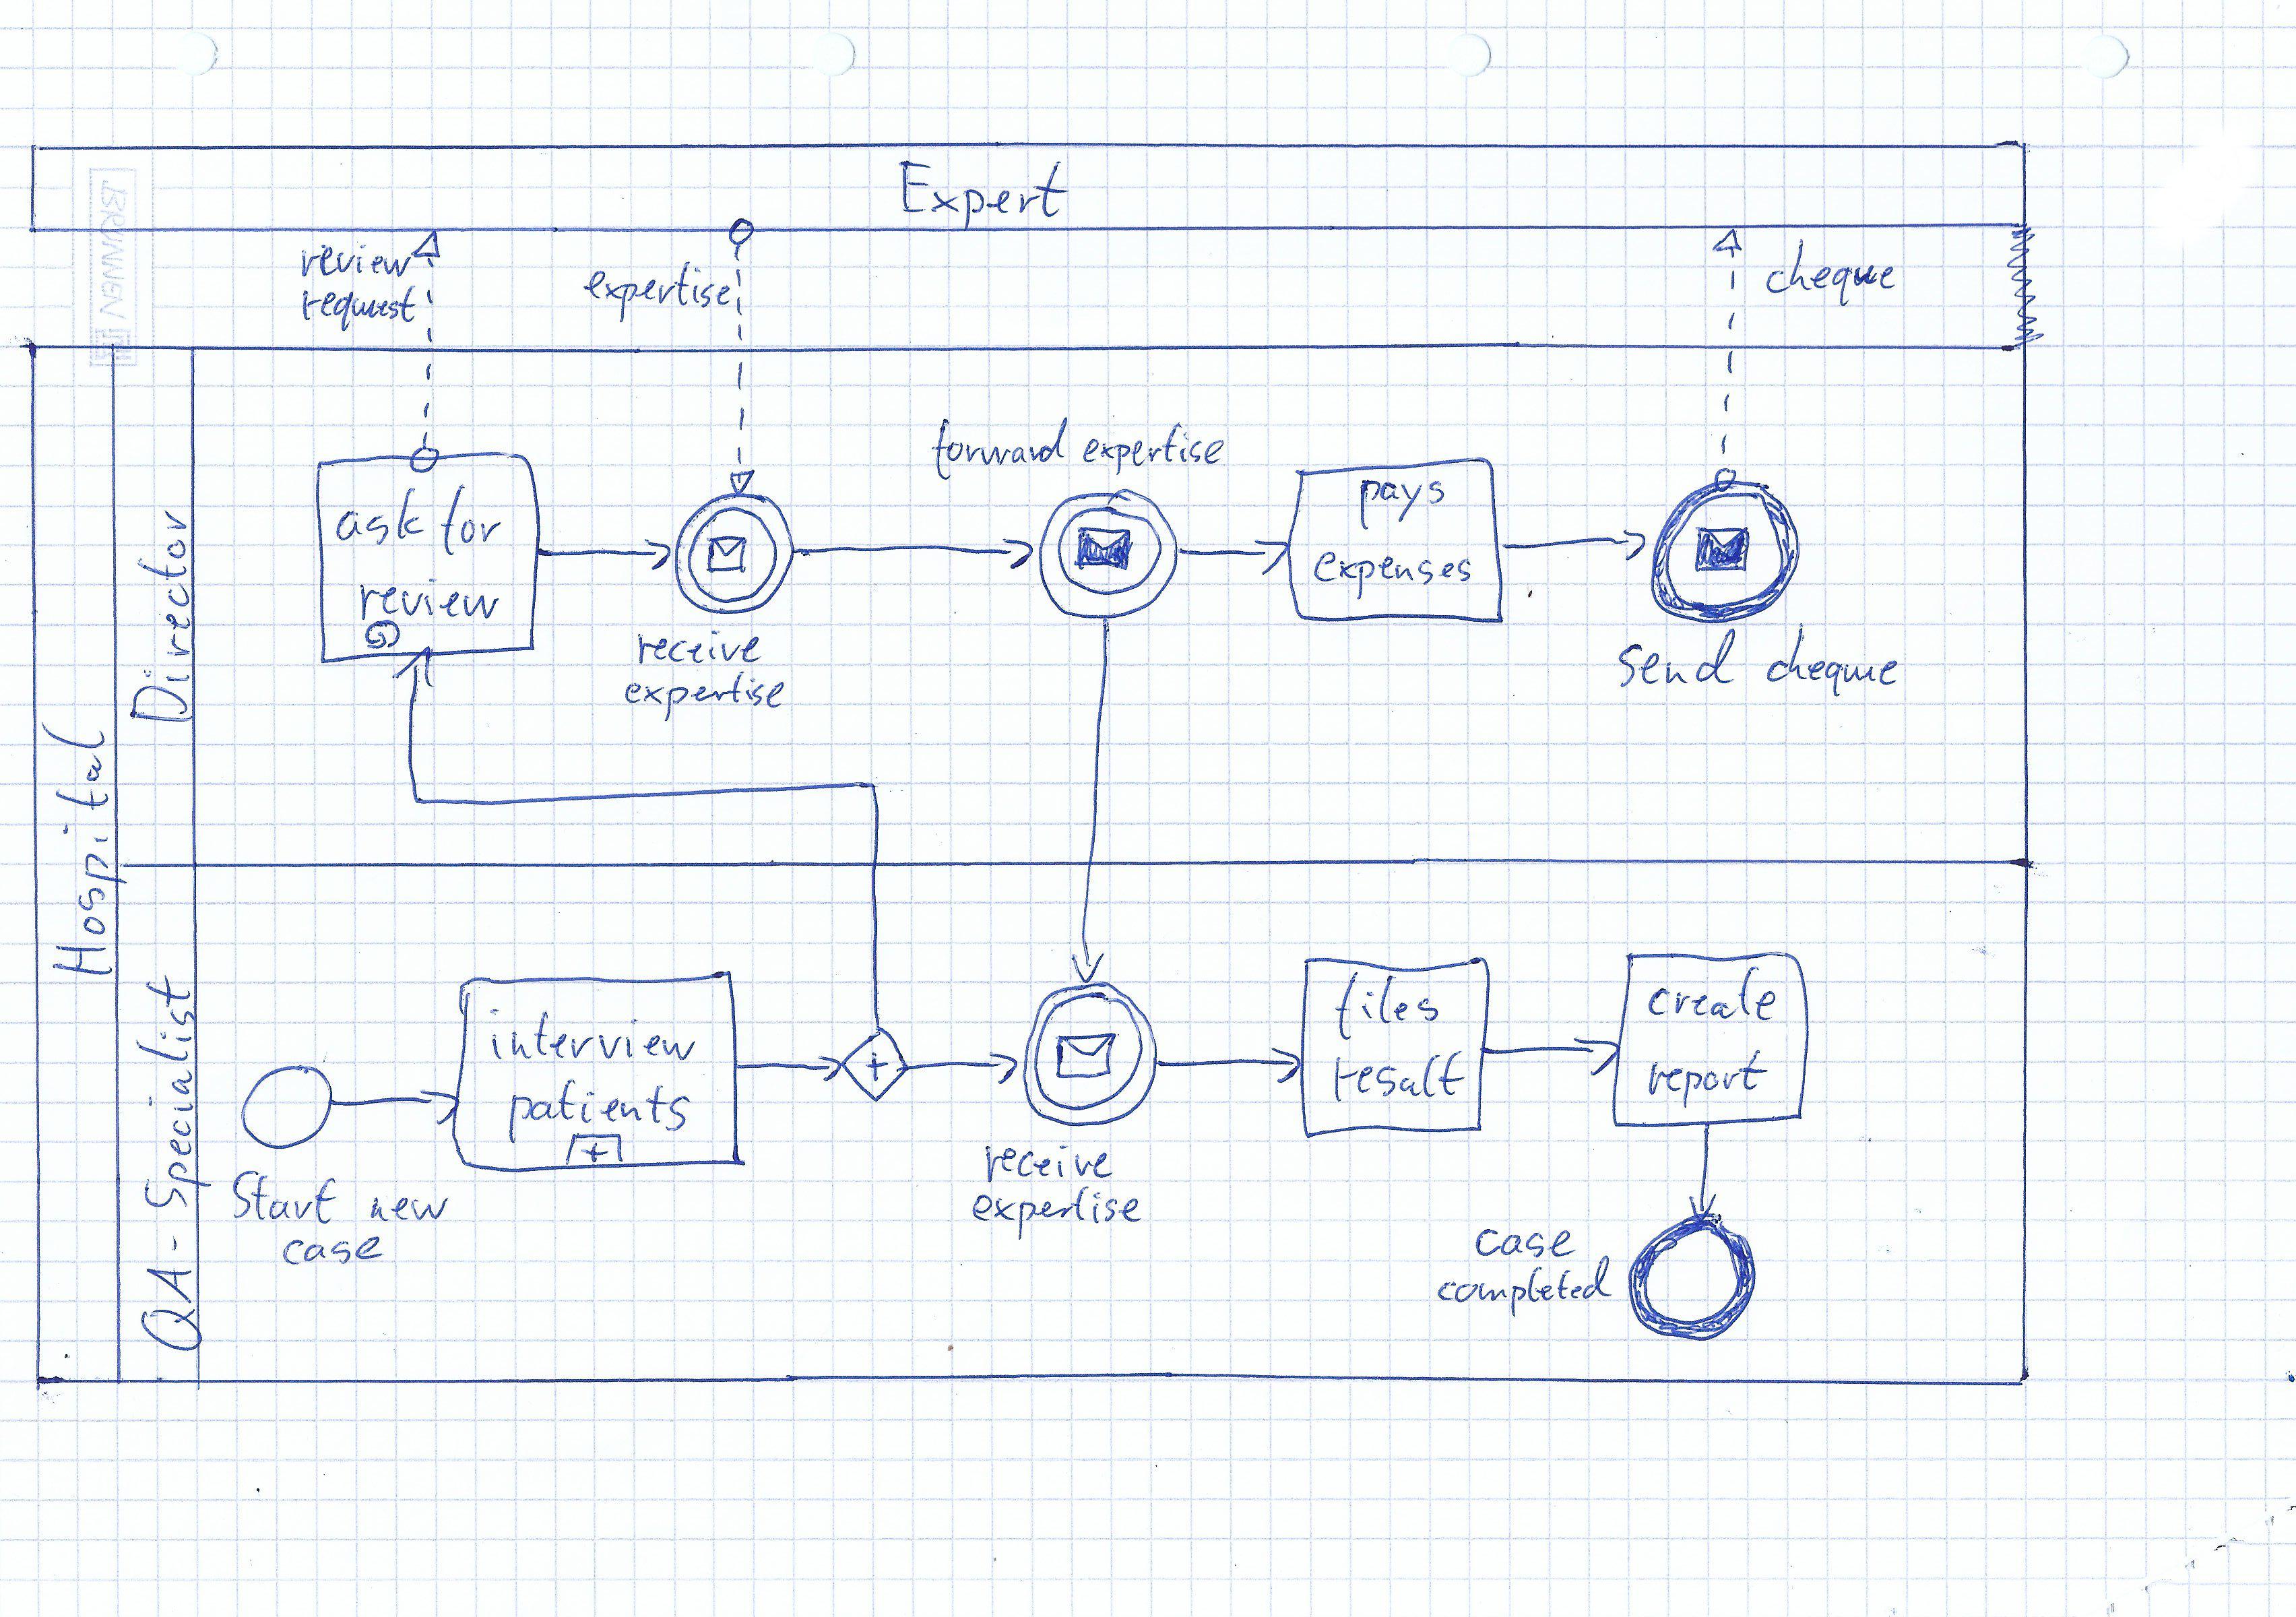 Expert
BRUNNEN
review
request
expertise
cheque
Hospital
Director
ask for
review
receive
expertise
forward expertise
pays
expenses
Send cheque
QA-Specialist
Start new
case
interview
patients
receive
expertise
files
resalt
create
report
case
completed